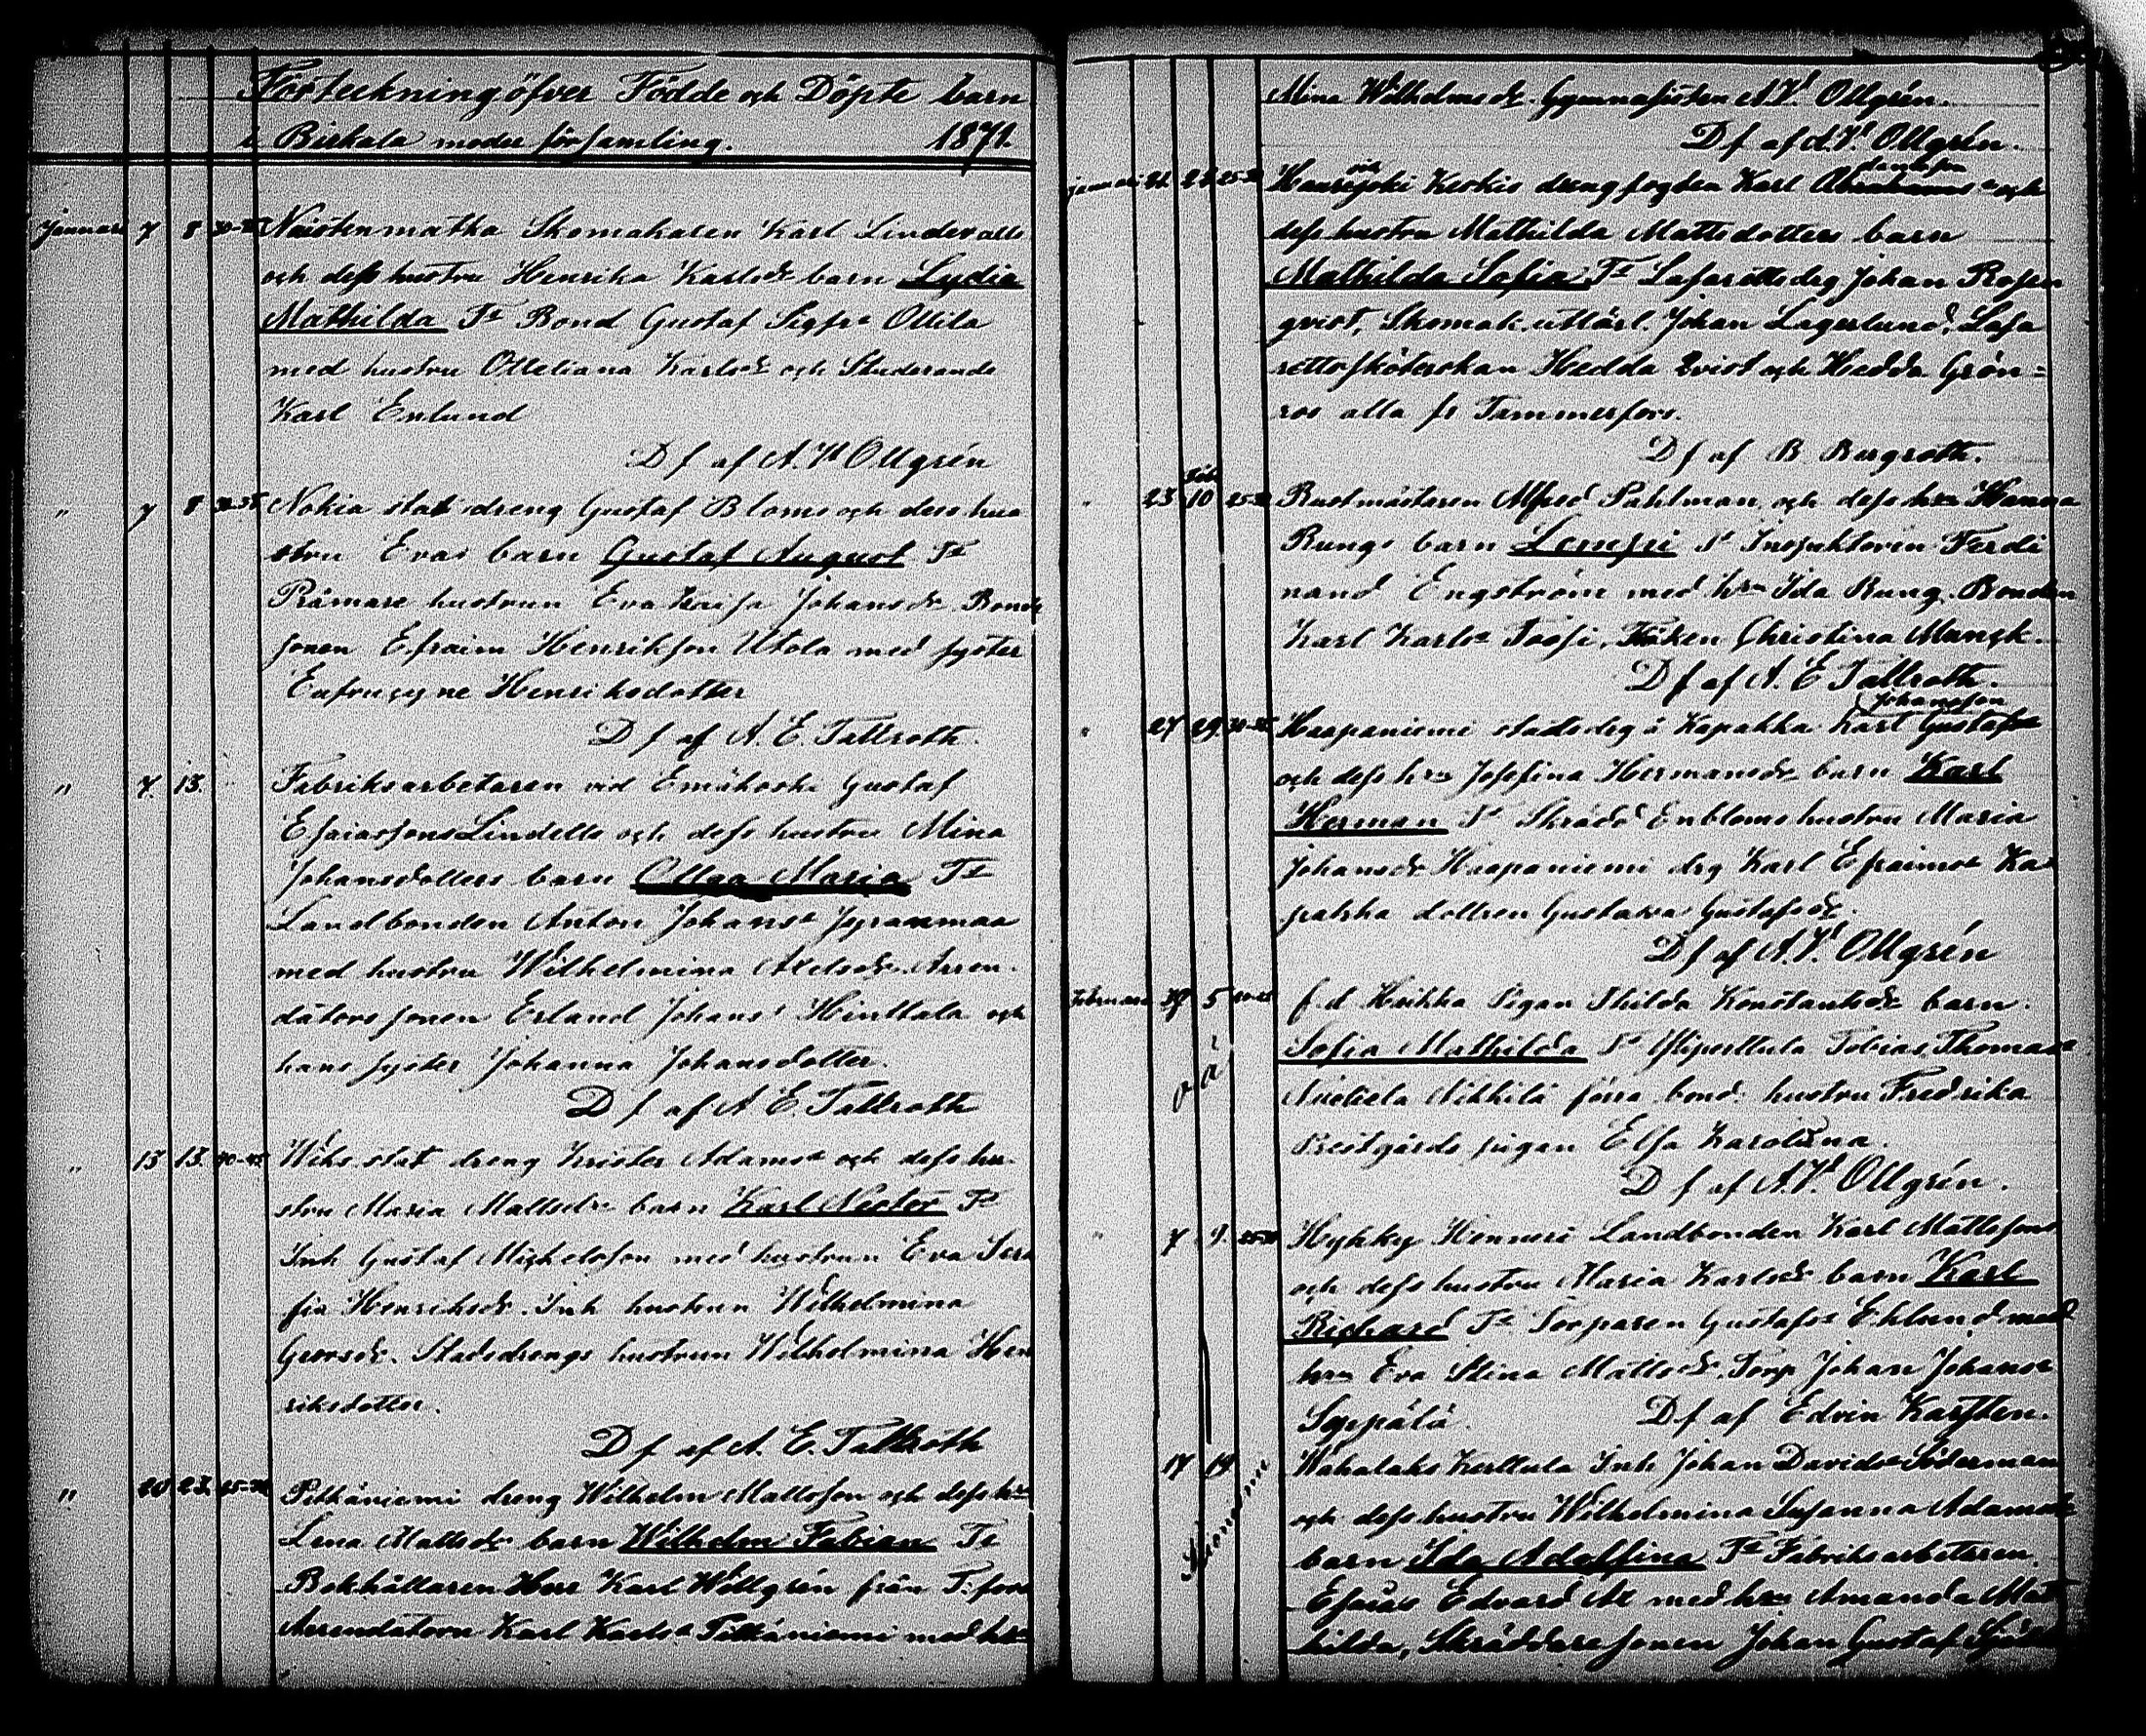 Förteckning öfver Födde och Döpte barn
i Birkala moder församling. 1871.
Januari 7 8 30-35 Naistenmatka Skomakaren Karl Lindevalls
och dess hustru Henrika Karlsdr barn Lydia
Mathilda Ts Bond Gustaf Sigfrs Ollila
med hustru Ottiliana Karlsdr och Studerande
Karl Enlund
D f af A. Vd Ollgrén
" 7 8 Nokia stat dreng Gustaf Bloms och dess hus
stru Evas barn Gustaf August Ts
Pråmare hustrun Eva Kaisa Johansdr Bonde
sonen Efraim Henriksson Utola med syster
Eufrosyne Henriksdotter
D f af A. E. Tallroth.
" 7. 15. Fabriksarbetaren vid Emäkoski Gustaf
Esaiassons Lindells och dess hustru Mina
Johansdotters barn Olga Maria Ts
Landbonden Anton Johans
med hustru Wilhelmina Axelsdr. Arren
dators sonen Erland Johans Hinttala och
hans syster Johanna Johansdotter.
D f af A E. Tallroth
" 15 15. 40-45 Wiks stat dreng Krister Adams och dess hu
stru Maria Mattsdr barn Karl Nestor Ts
Inh Gustaf Michelsson med hustrun Eva Sera
fia Henriksdr. Inh hustrun Wilhelmina
Georsdr. Statsdrengs hustrun Wilhelmina Hen
riksdotter.
D f af A. E. Tallroth
" 20 23. 25-30 Pitkäniemi dreng Wilhelm Mattsson och dess h
Lena Mattsdr barn Wilhelm Fabian Ts
Bokhållaren Herr Karl Willgrén från T:fors
Arrendatorn Karl Karls Pitkäniemi med h
Mina Wilhelmsdr. Gymnasisten A. Vd. Ollgrén.
D f af A. Vd. Ollgrén.
Januari 21. 22 25-30 Kerkis drengfogden Karl och
dess hustru Mathilda Mattsdotters barn
Mathilda Sofia Ts Lasarettsdrg Johan Rosen
qvist, Skomak. utlärl. Johan Lagerlund, Lasa
rettsköterskan Hedda Qvist och Hedda Grön=
ros alla fr Tammerfors.
D f af B. Bergroth.
" 23 Feb 10 25-30 Rustmästaren Alfred Pahlman och dess h Hanna
Rungs barn Lempi Ts Inspektoren Ferdi
nand Engström med h Ida Rung. Bonden
Karl Karls Toosi, Fröken Christina Munck.
D f af A. E Tallroth.
Johansson
" 27 29. 30-35 Haapaniemi statsdrg å Kapakka Karl Gustafs
och dess h Josefina Hermansdr barn Karl
Herman Ts Skrädd Enbloms hustru Maria
Johansdr Haapaniemi drg Karl Efraims Ka
pakka dottren Gustava Gustafsdr.
D f af A. Vd. Ollgrén
Februari 5 f.d Heikka Pigan Thilda Konstantsdr barn
oä
Sofia Mathilda Ts Tobias Thomas
Nikkilä förra bond. hustru Fredrika
Prestgårds pigan Elsa Karolina.
D f af A. Vd. Ollgrén.
" 7 9. 25-30 Hyhky Henneri Landbonden Karl Mattssons
och dess hustru Maria Karlsdr barn Karl
Richard Ts Torparen Gustafs Ehlund med
h Eva Stina Mattsdr. Torp Johan Johans
Seppälä. D f af Edvin Karsten.
17 19 Wahalaks Kerttula Inh Johan Davids Söderman
och dess hustru Wilhelmina Susanna Adamsdr
barn Ida Adolfina Ts Fabriksarbetaren
Esaias Edvard As med h Amanda Mat
hilda, Skräddare sonen Johan Gustaf